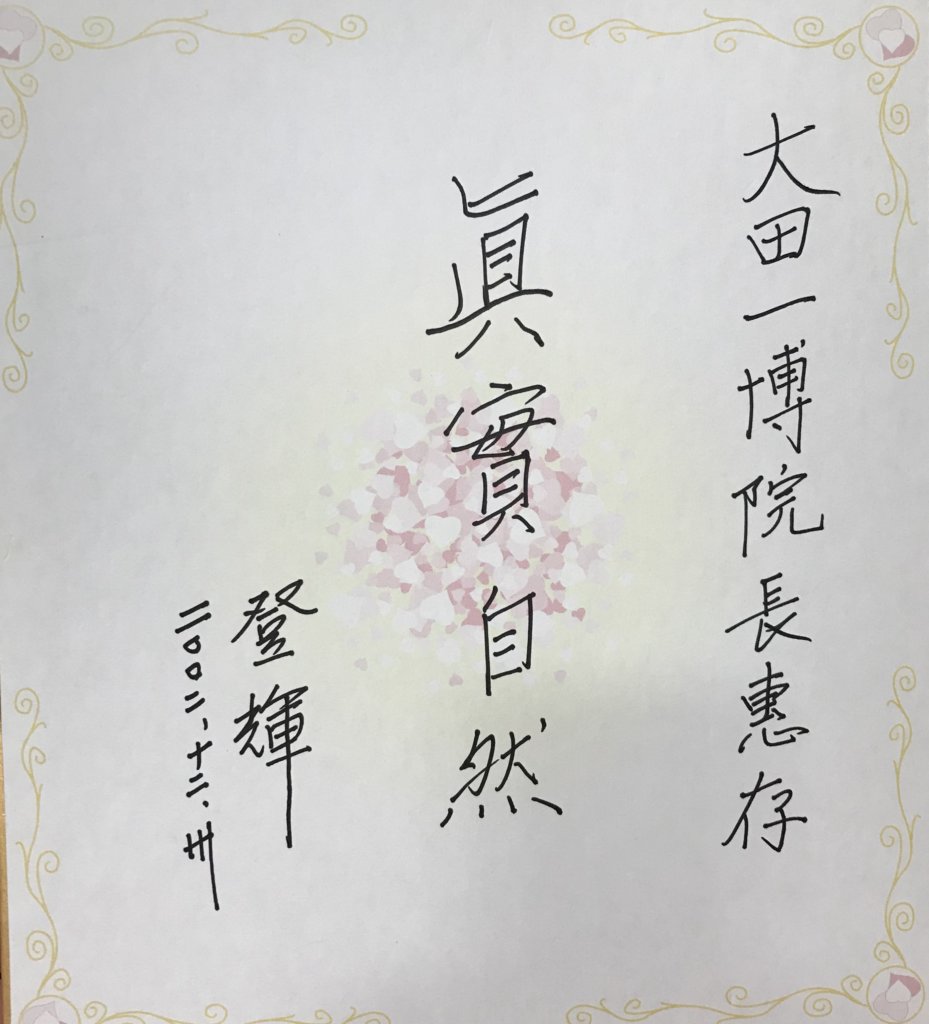 大田一博院長惠存
眞實自然
登輝
二00二、十二、卅